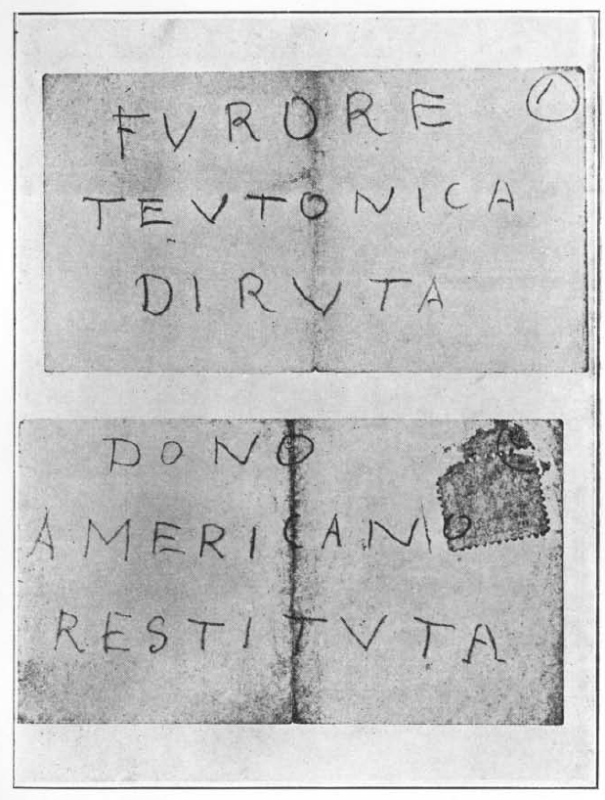 FVRORE
TEVTONICA
DIRVTA
DONO
AMERICANO
RESTITVTA